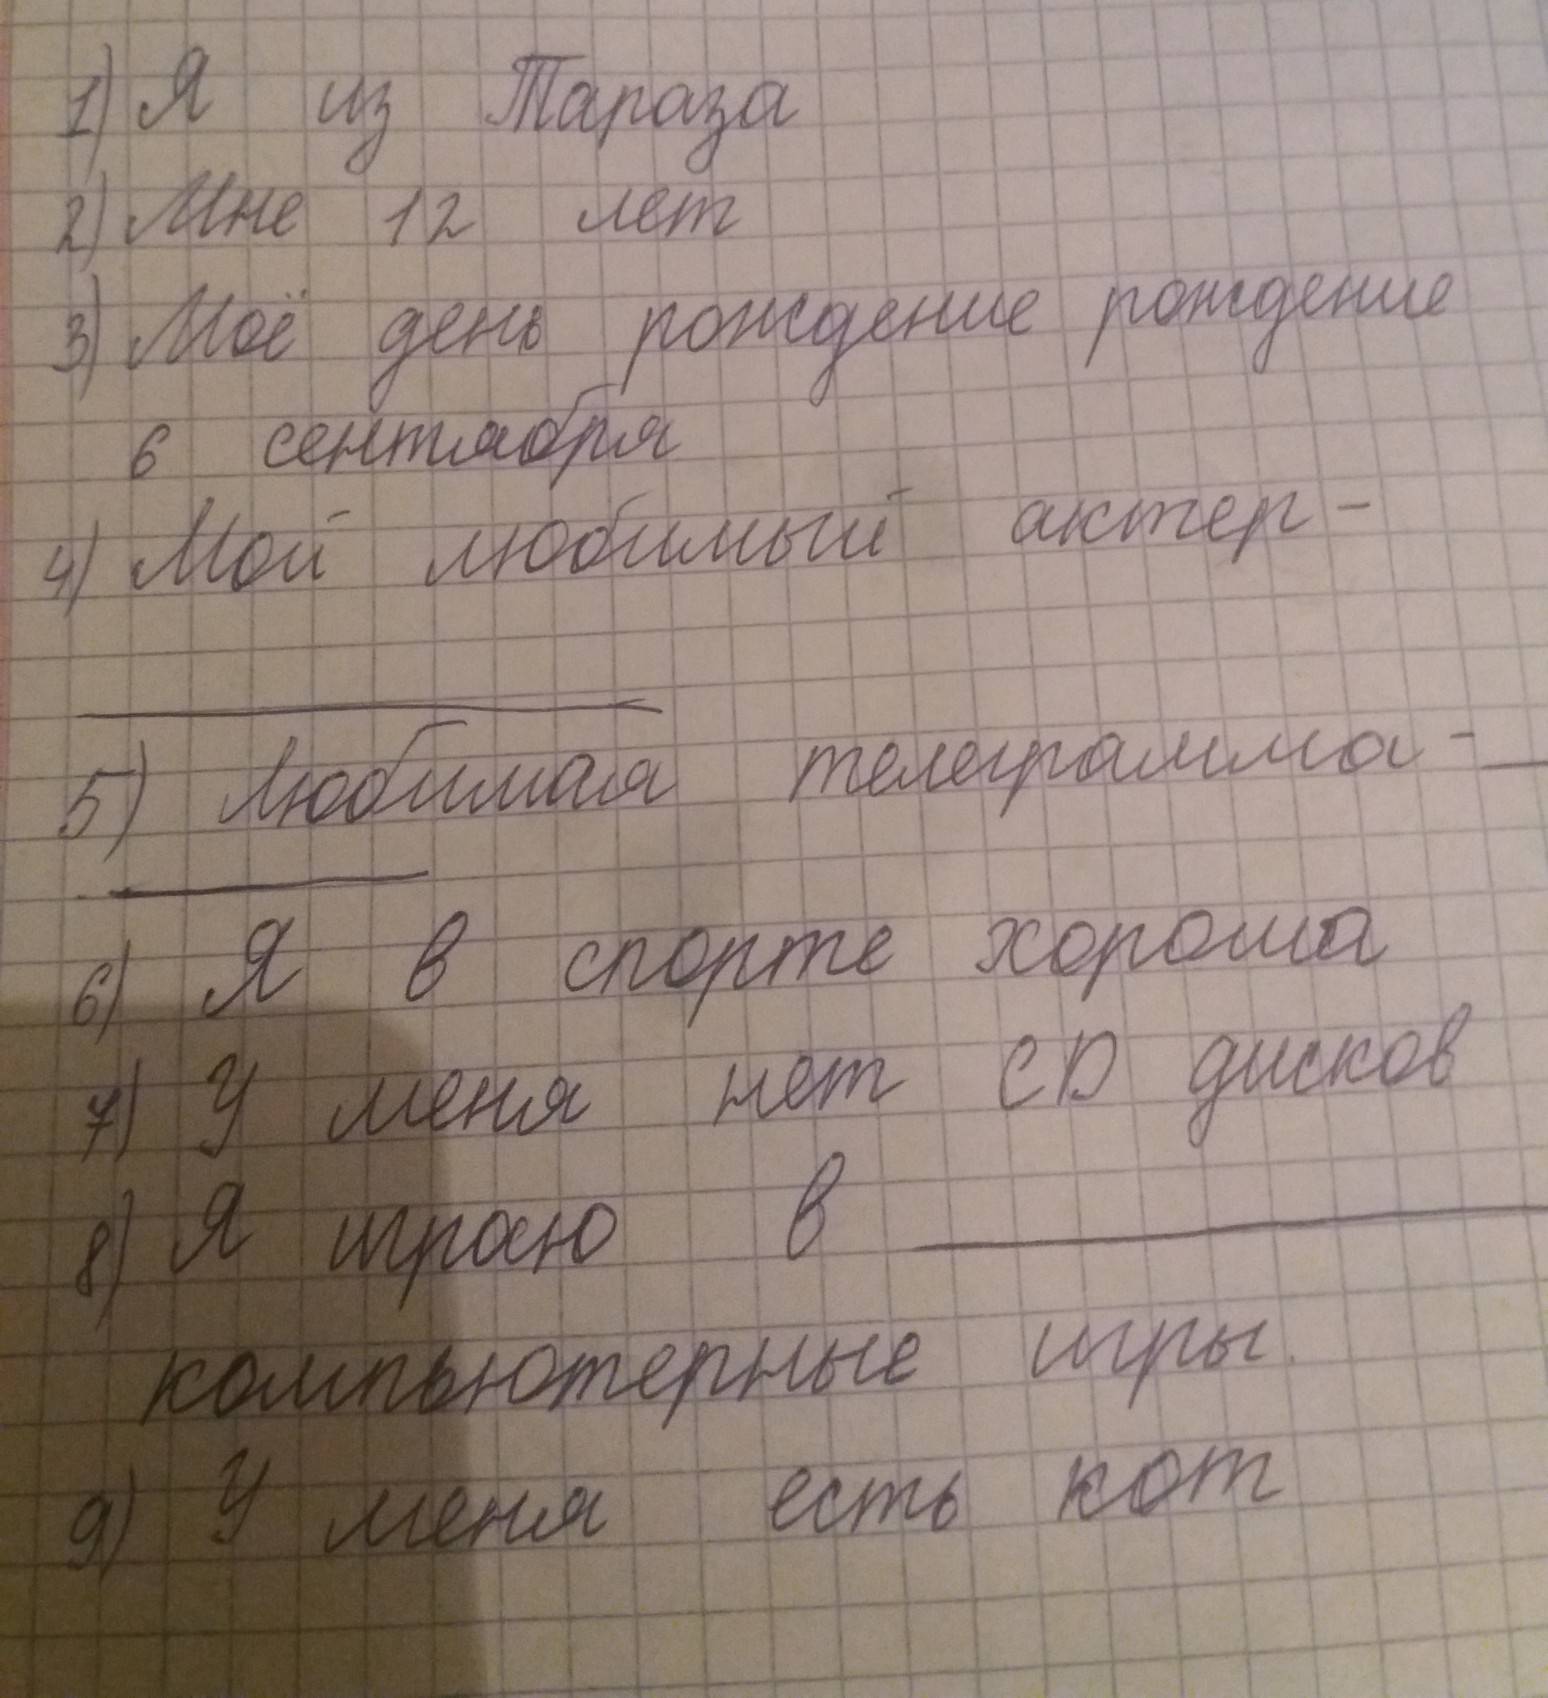 1) Я из Тараза
2) Мне 12 лет
3) Моё день рождение рождение
6 сентября
4) Мой любимый актер -
5) Любимая телеграмма -
6) Я в спорте хороша
7) У меня нет CD дисков
8) Я играю в
компьютерные игры.
9) У меня есть кот